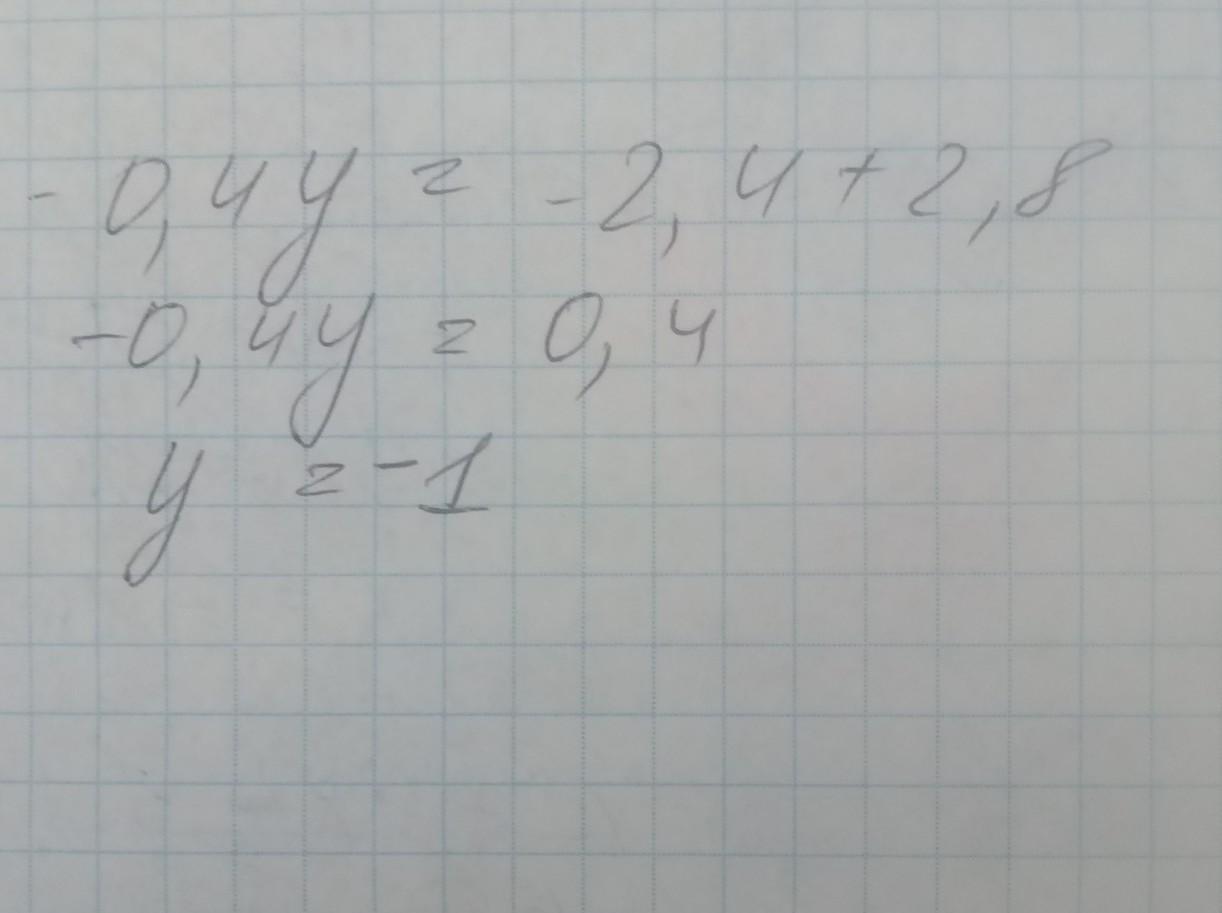 -0,4y = -2,4+2,8
-0,4y = 0,4
y = -1